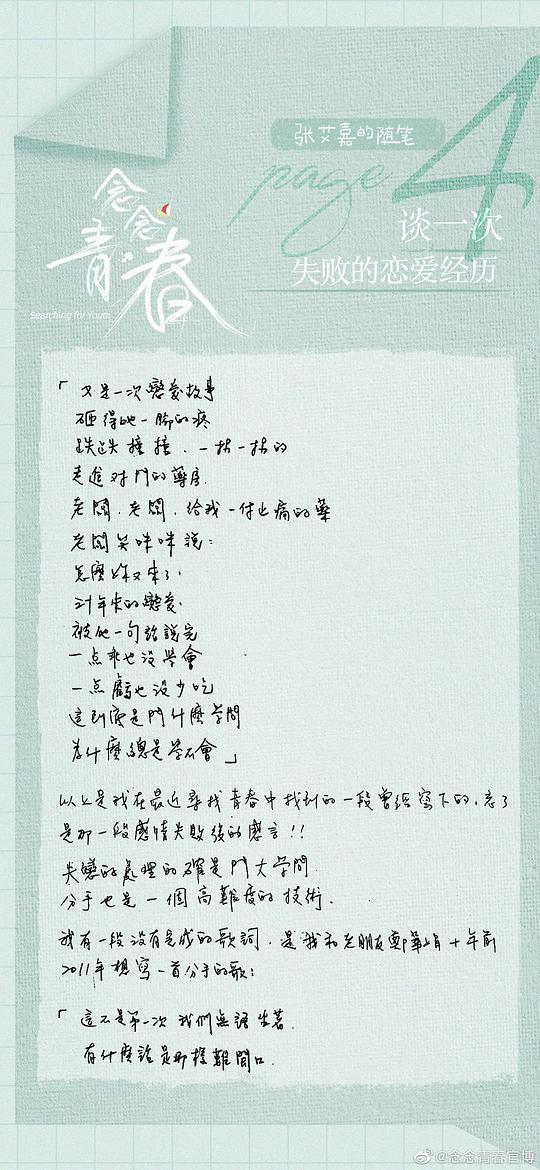 张艾嘉的随笔
page 4
谈一次
失败的恋爱经历
念念青春
Searching for Youth
「又是一次戀愛故事
砸得她一腳的疼
跌跌撞撞．一拐一拐的
走進對門的藥房.
老闆．老闆．給我一付止痛的藥
老闆笑咪咪說：
怎麼妳又來了.
幾十年來的戀愛
被他一句話說完
一点乖也没學會
一点虧也没少吃
這到底是門什麼學問
為什麼總是學不會」
以上是我在最近尋找青春中找到的一段曾經寫下的．忘了
是那一段感情失敗後的感言！！
失戀的處理的確是門大學問.
分手也是一個高難度的技術.
我有一段没有完成的歌詞．是我和老朋友鄭華娟十年前
2011年想寫一首分手的歌：
「這不是第一次 我們無語坐著.
有什麼話是那樣難開口.
@念念青春官博